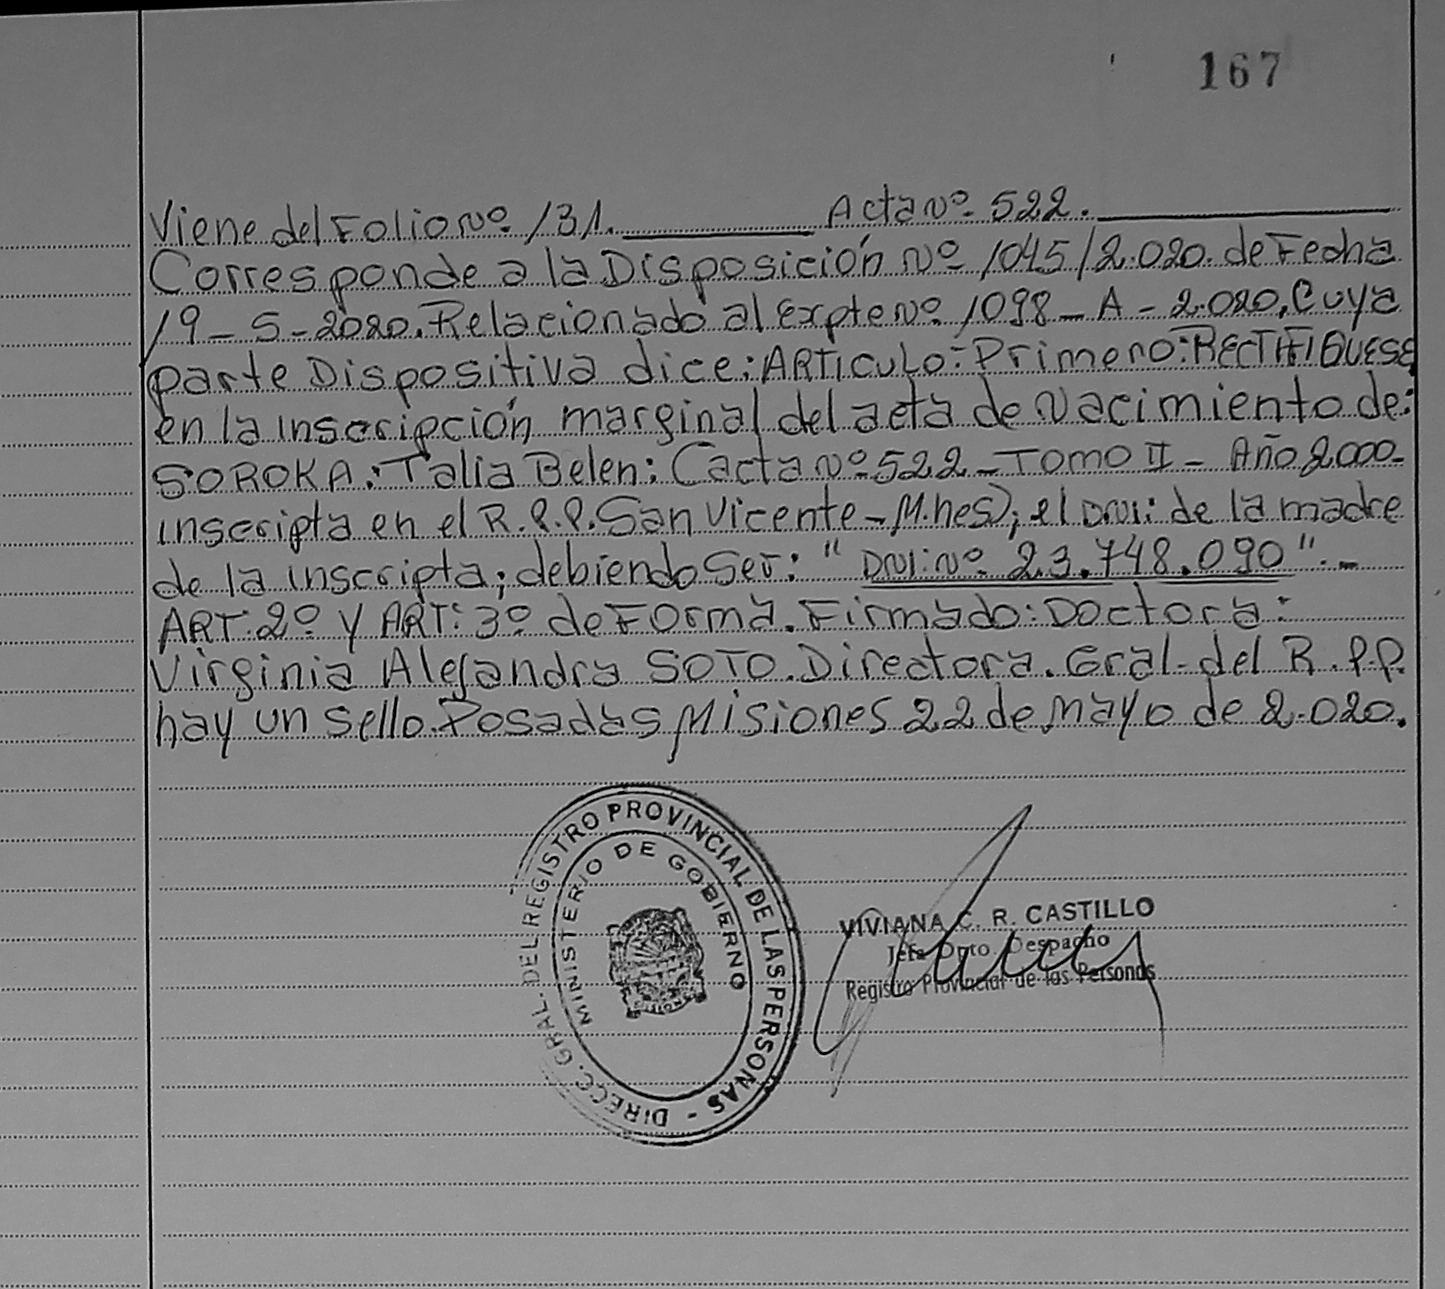 167
Viene del Folio Nº 131. Acta Nº 522.
Corresponde a la Disposición Nº 1045/2.020. de Fecha
19-5-2020. Relacionado al Expte Nº 1098-A-2.020, Cuya
parte Dispositiva dice: ARTICULO: Primero: RECTIFIQUESE
en la inscripción marginal del acta de Nacimiento de:
SOROKA: Talia Belen: (acta Nº 522 - TOMO II - Año 2000-
inscripta en el R.P.P. San Vicente - M.nes); el DNI: de la madre
de la inscripta; debiendo Ser: "DNI: Nº 23.748.090".-
ART: 2º Y ART: 3º de Forma. Firmado: Doctora:
Virginia Alejandra SOTO. Directora. Gral. del R.P.P.
hay un sello. Posadas Misiones 22 de Mayo de 2.020.
DIRECC. GRAL. DEL REGISTRO PROVINCIAL DE LAS PERSONAS -
MINISTERIO DE GOBIERNO
VIVIANA C. R. CASTILLO
Jefa Dpto Despacho
Registro Provincial de las Personas